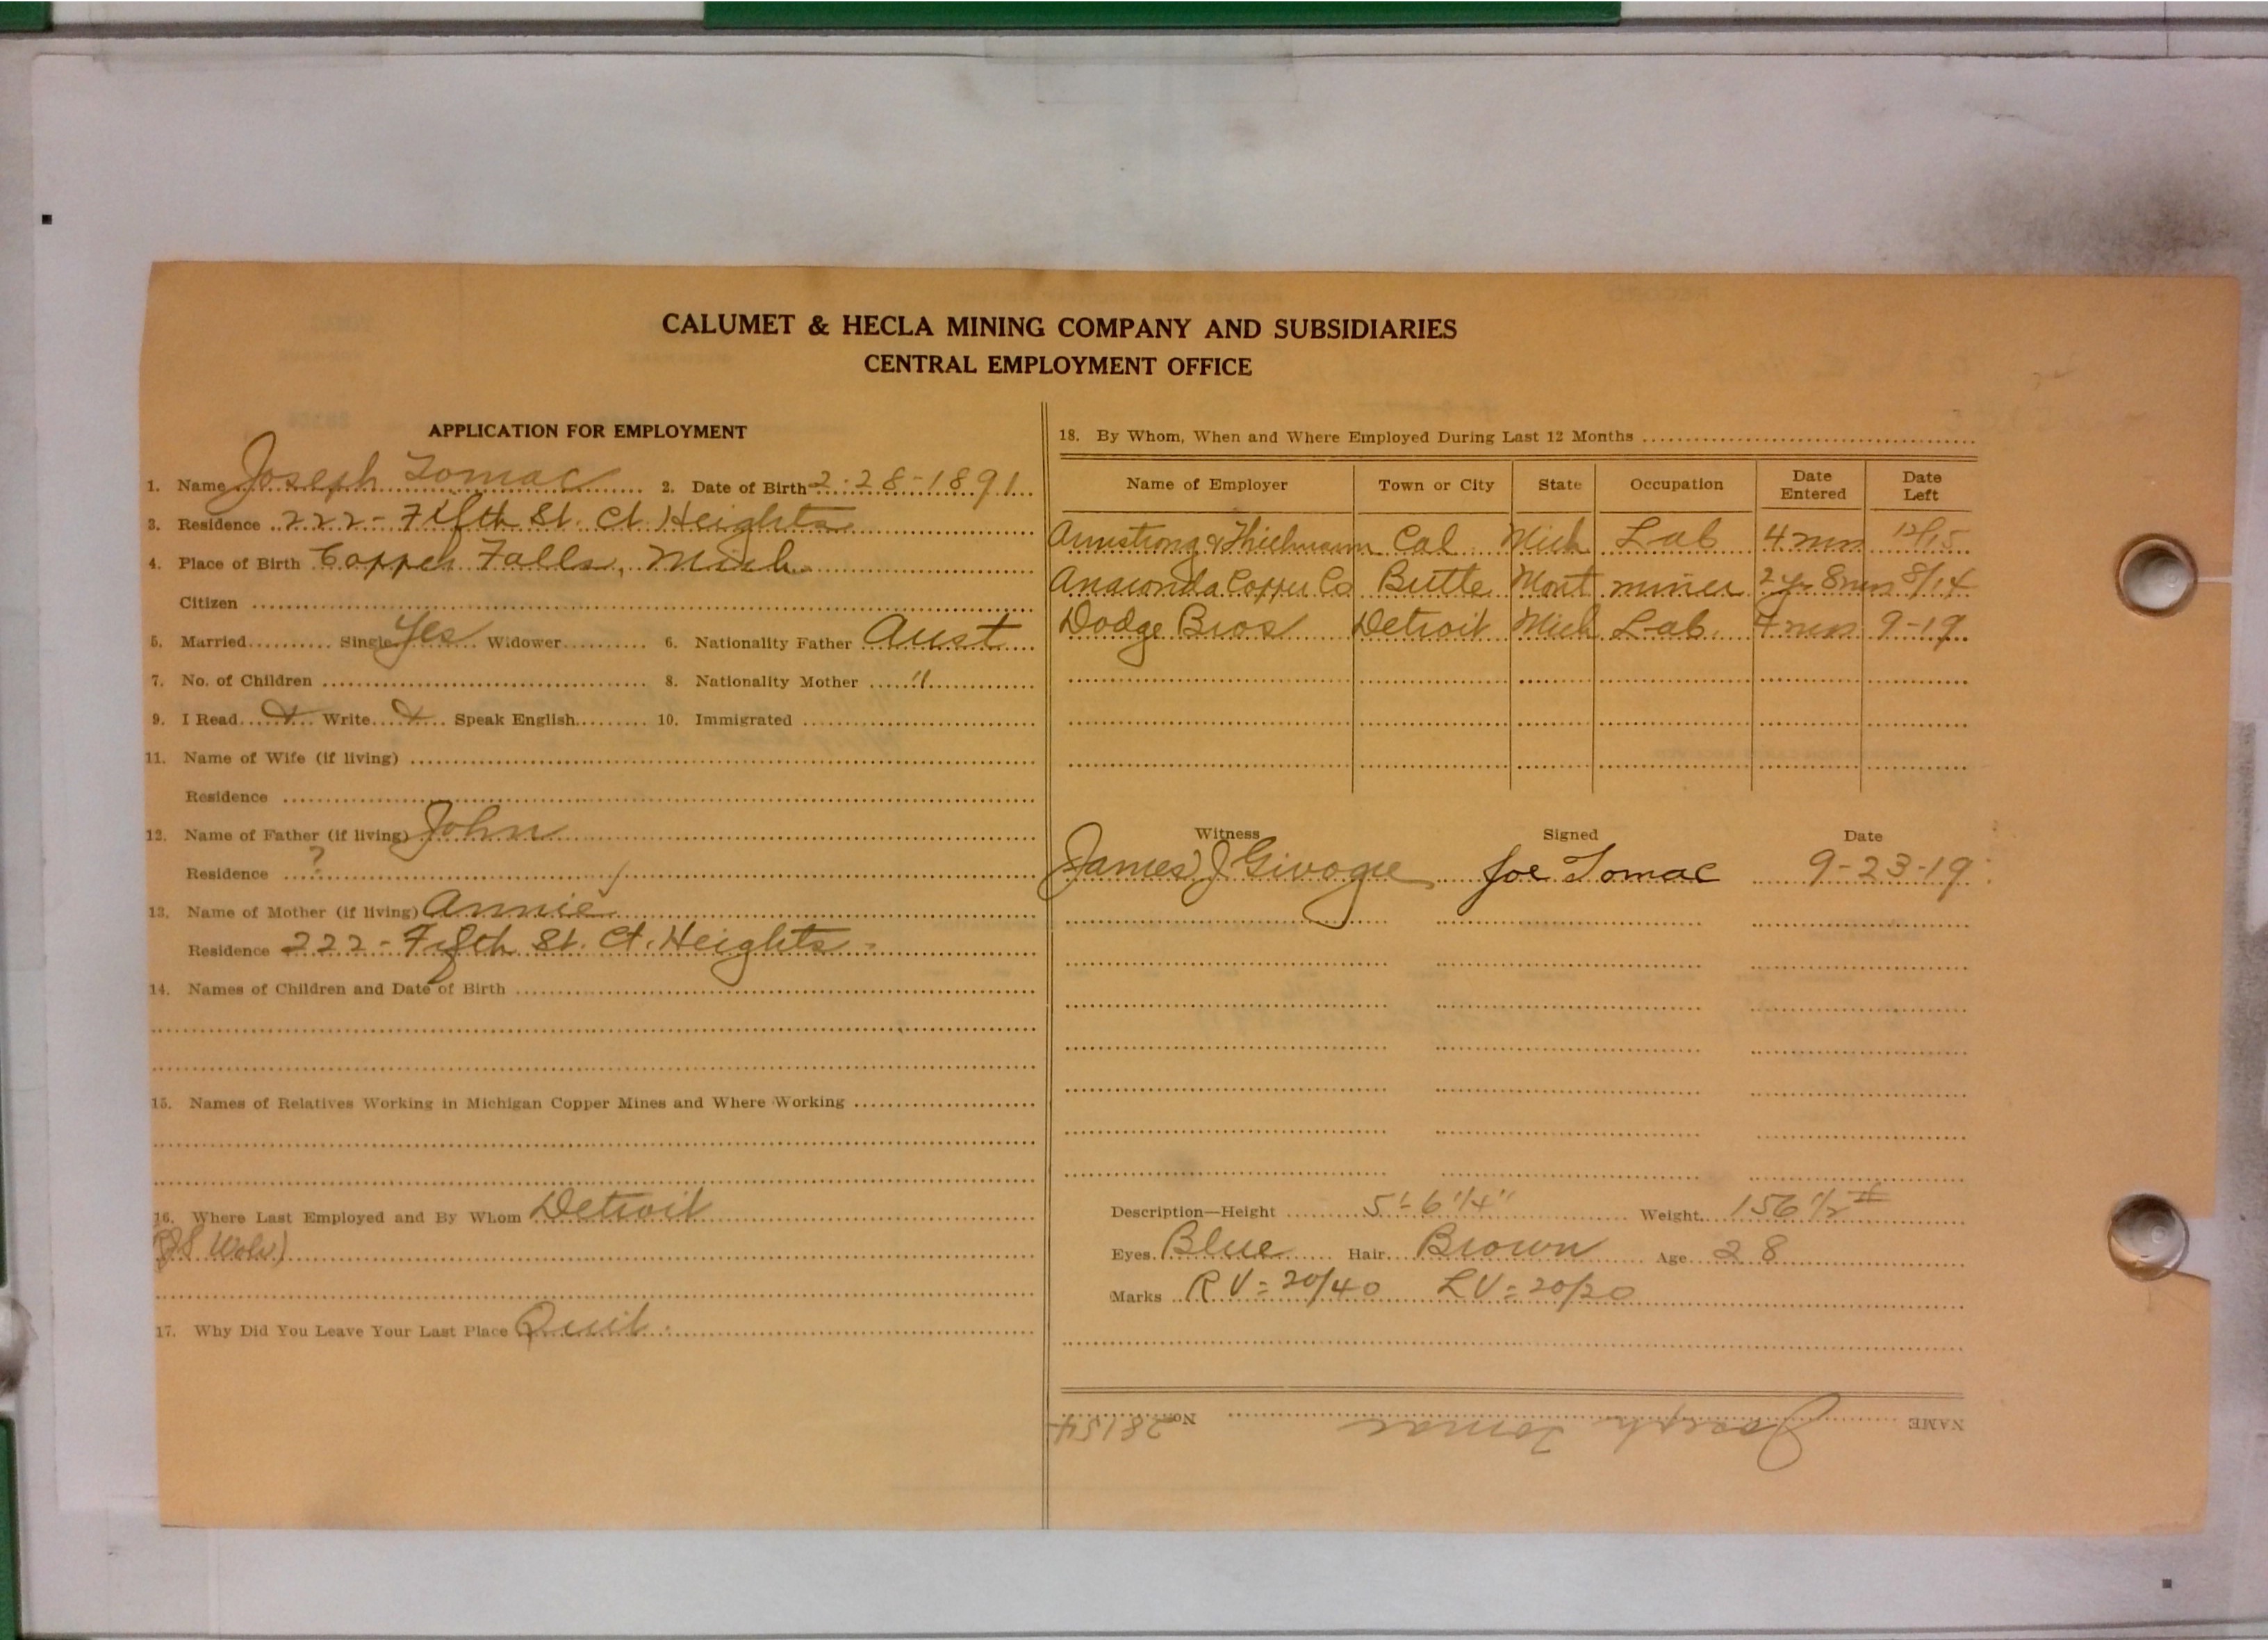 CALUMET & HECLA MINING COMPANY AND SUBSIDIARIES
CENTRAL EMPLOYMENT OFFICE
APPLICATION FOR EMPLOYMENT
1. Name Joseph Tomac 2. Date of Birth 2-28-1891
3. Residence 222 - Fifth St. Ct. Heights
4. Place of Birth Copper Falls, Mich.
Citizen
5. Married Single Yes Widower 6. Nationality Father Aust
7. No. of Children 8. Nationality Mother "
9. I Read X Write X Speak English 10. Immigrated
11. Name of Wife (if living)
Residence
12. Name of Father (if living) John
Residence ?
13. Name of Mother (if living) Annie
Residence 222 - Fifth St. Ct. Heights
14. Names of Children and Date of Birth
15. Names of Relatives Working in Michigan Copper Mines and Where Working
16. Where Last Employed and By Whom Detroit
17. Why Did You Leave Your Last Place Quit.
18. By Whom, When and Where Employed During Last 12 Months
Name of Employer Town or City State Occupation Date Entered Date Left
Armstrong & Thielmann Cal. Mich Lab 4 mn 12/15
Anaconda Copper Co Butte Mont miner 2 yr 8 mn 8/14
Dodge Bros Detroit Mich Lab. 4 mn 9-19
Witness Signed Date
James J Givogue Joe Tomac 9-23-19
Description—Height 5'-6 1/4" Weight 156 1/2 #
Eyes Blue Hair Brown Age 28
Marks R V = 20/40 L V = 20/20
NAME Joseph Tomac No. 28154